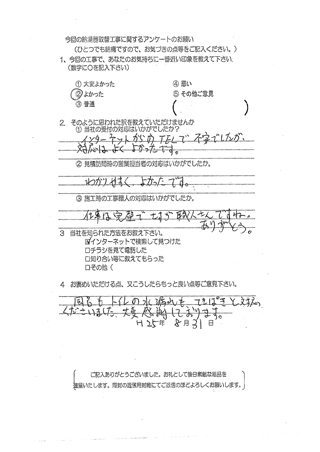 今回の給湯器取替工事に関するアンケートのお願い
(ひとつでも結構ですので、お気づきの点等をご記入ください。)
1、今回の工事で、あなたのお気持ちに一番近い印象を教えて下さい。
(数字に○を記入下さい)
① 大変よかった ④ 悪い
② よかった ⑤ その他ご意見
③ 普通 ( )
2．そのように思われた訳を教えていただけませんか
① 当社の受付の対応はいかがでしたか?
インターネットからのTELで不安でしたが、
対応はよくよかったです。
② 見積訪問時の営業担当者の対応はいかがでしたか。
わかりやすく、よかったです。
③ 施工時の工事職人の対応はいかがでしたか。
仕事は完璧です 職人さんですね。
ありがとう。
3 当社を知られた方法をお教え下さい。
☑インターネットで検索して見つけた
□チラシを見て電話した
□知り合い等に教えてもらった
□その他(
4 お褒めいただける点、又こうしたらもっと良い点等ご意見下さい。
トイレの水漏れも、てきぱきと
くださいました。大変感謝しております。
H25年 8月31日
ご記入ありがとうございました。お礼として後日素敵な粗品を
進呈いたします。同封の返信用封筒にてご返信のほどよろしくお願いします。